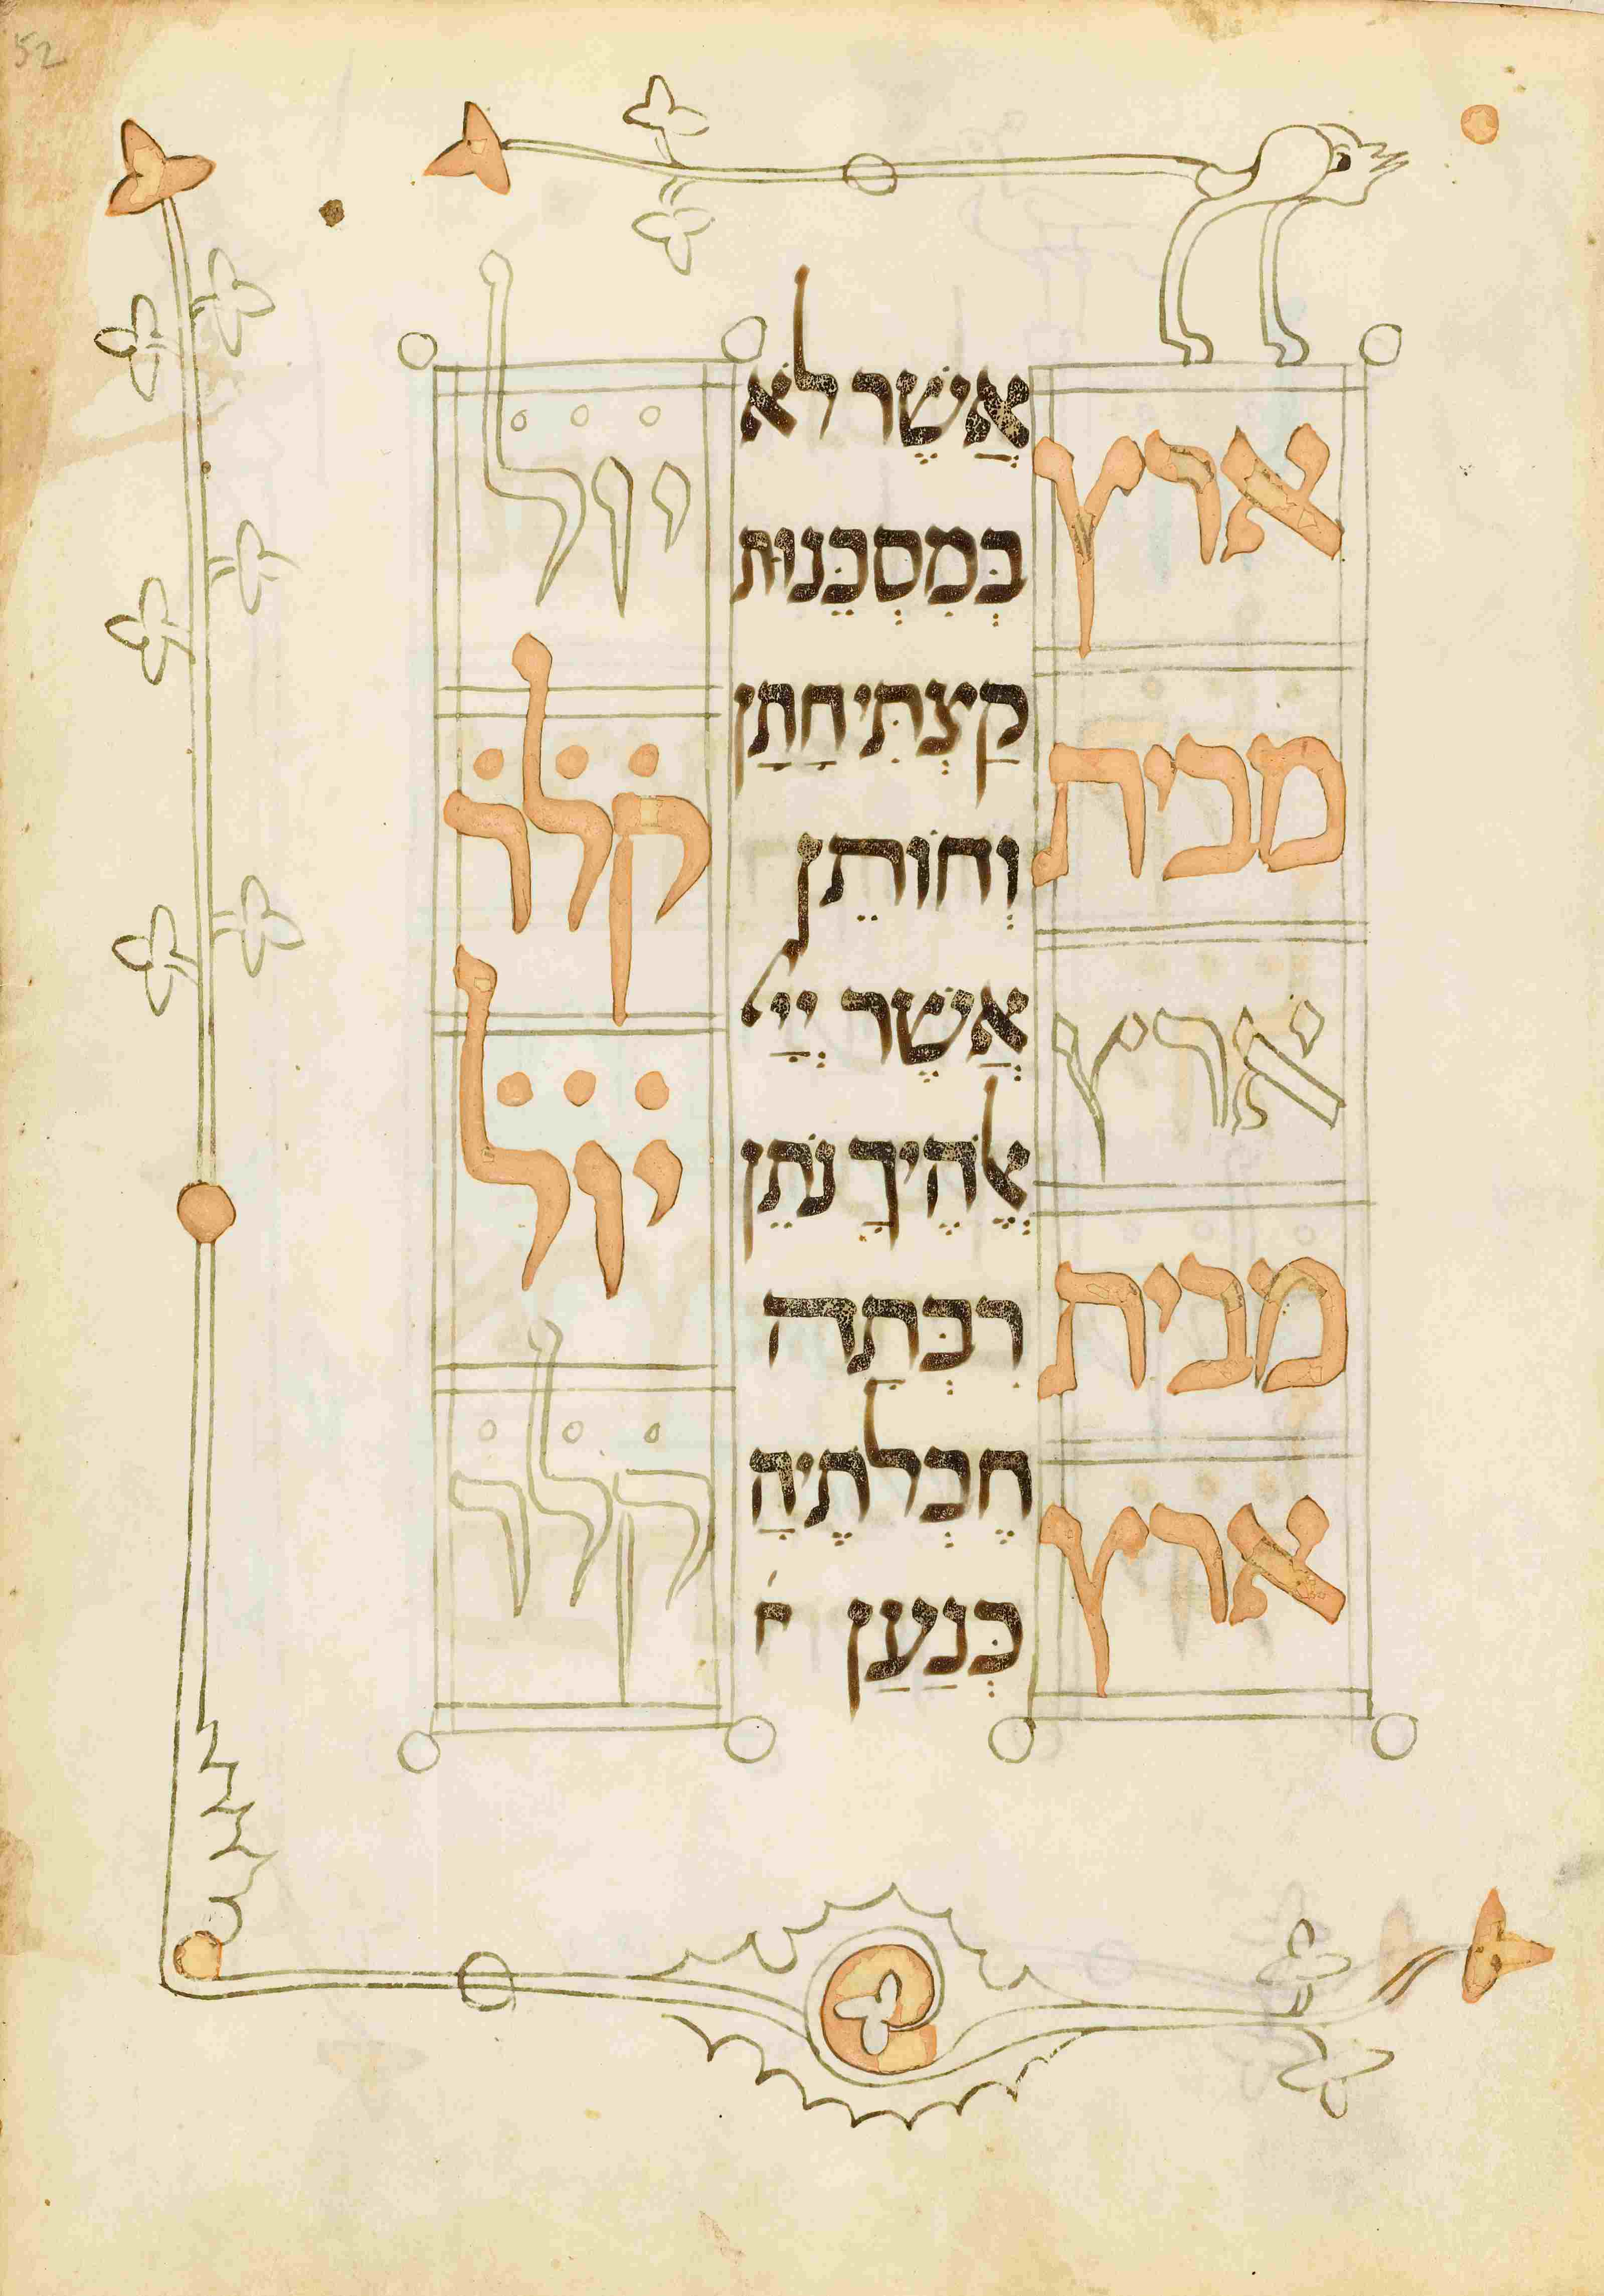 52
ארץ
מבית
ארץ
מבית
ארץ
אֲשֶׁר לֹא
בְּמִסְכֵּנוּת
קַצְתִּי חָתָן
וְחוֹתֵן
אֲשֶׁר יְיָ
אֱלֹהֶיךָ נֹתֵן
רִבְּתָה
חֶבְלתֶיהָ
כְּנַעַן
יׄוׄלׄ
קׄלׄרׄ
יׄוׄלׄ
קׄלׄרׄ